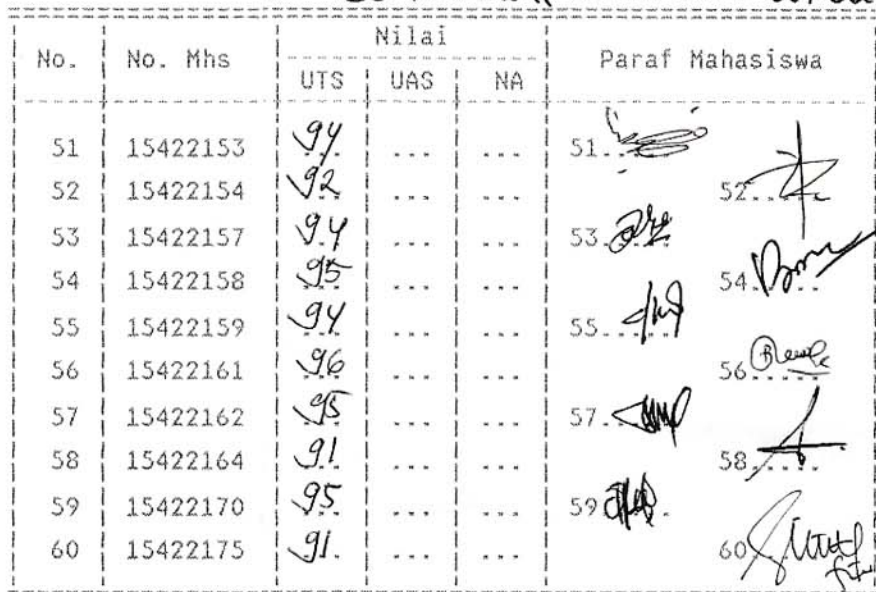 Nilai
No. No. Mhs UTS UAS NA Paraf Mahasiswa
51 15422153 94 ... ... 51......
52 15422154 92 ... ... 52......
53 15422157 94 ... ... 53......
54 15422158 95 ... ... 54......
55 15422159 94 ... ... 55......
56 15422161 96 ... ... 56......
57 15422162 95 ... ... 57......
58 15422164 91 ... ... 58......
59 15422170 95 ... ... 59......
60 15422175 91 ... ... 60......